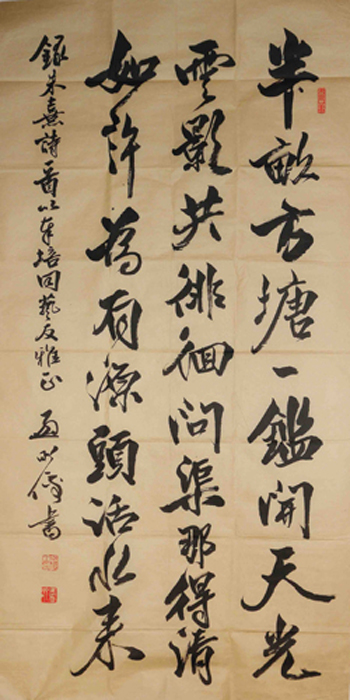 半畝方塘一鑑開天光
雲影共徘徊問渠那得清
如許為有源頭活水来
錄朱熹詩一首以奉培回藝友雅正
書